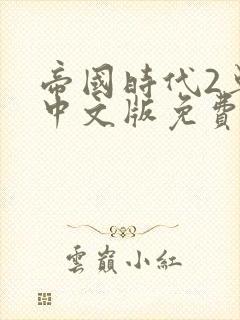 帝國時代2
中文版免費
雲巔小紅